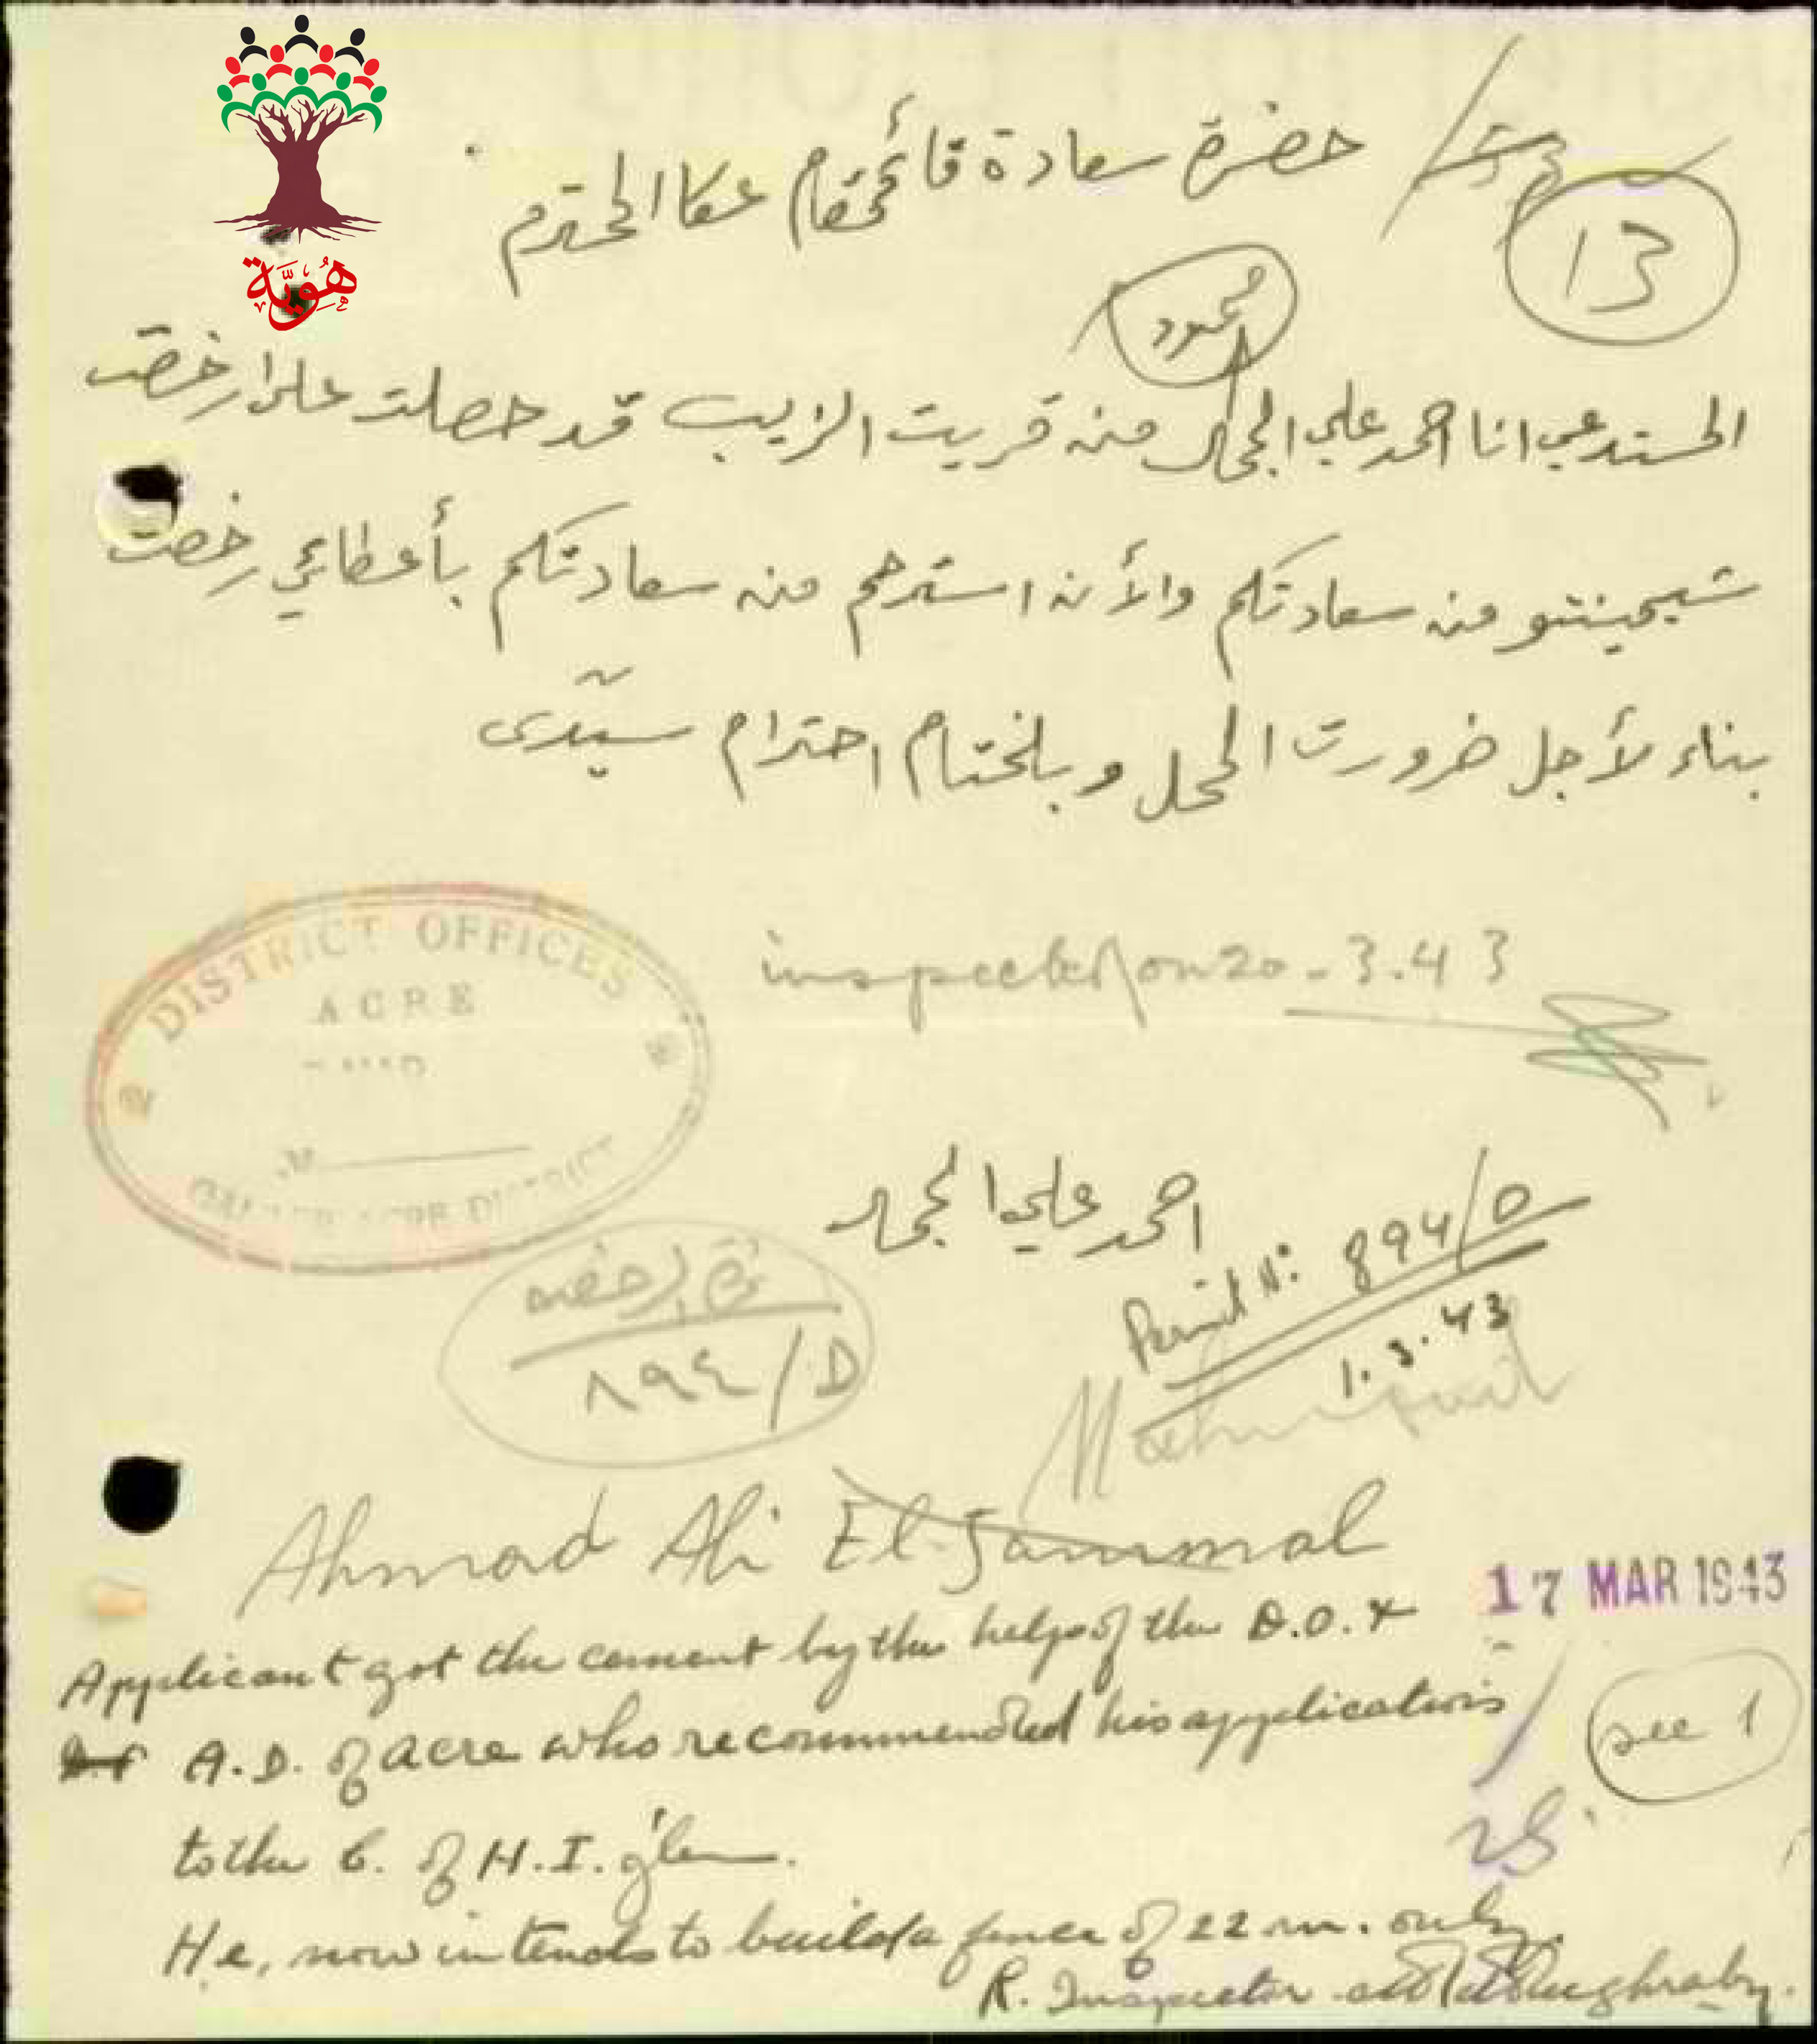 هُوِيَّة
حضرة سعادة قائمقام عكا المحترم
13
محمود
المستدعي انا احمد علي الجمال من قريت الزيب قد حصلت على رخصت
شمينتو من سعادتكم والأن استرحم من سعادتكم بأعطائي رخصت
بناء لأجل ضرورت المحل وبلختام احترام سيّدى
DISTRICT OFFICES
ACRE
DISTRICT
inspected on 20-3.43
احمد علي الجمال
Permit No: 894/D
1.3.43
٨٩٤/D
Mahmoud
Ahmad Ali El-Jammal
17 MAR 1943
Applicant got the cement by the help of the D.O. &
A.D. of Acre who recommended his applications
see 1
to the C. of H.I. g'lem.
He, now intends to build a fence of 22 m. only.
R. Inspector